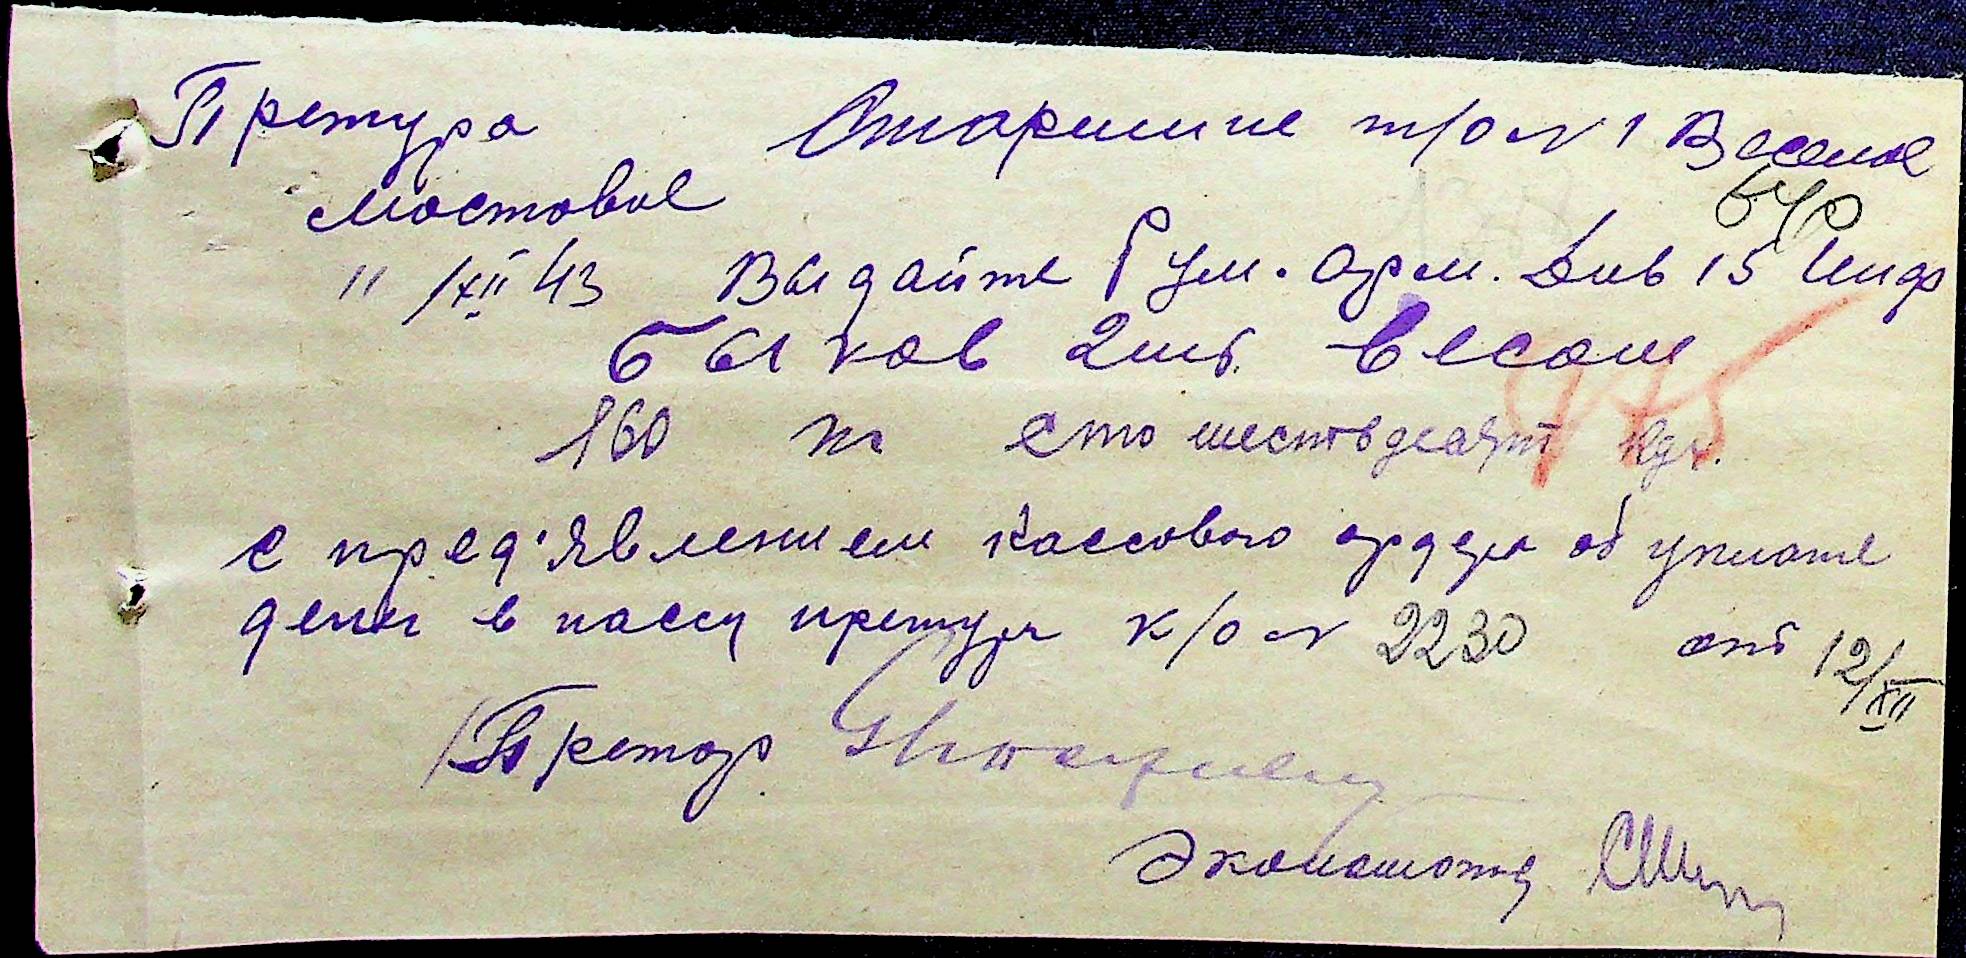 Претура Старшине т/о № 1 Веселое
Мостовое
640
11/XII 43 Выдайте Рум. Арм. Див 15 Инф
Быков 2 шт. весом
175
160 кг сто шестьдесят кгр.
с пред'явлением кассового ордера об уплате
денег в кассу претуры к/о № 2230 от 12/XII
Претор
Экономотд